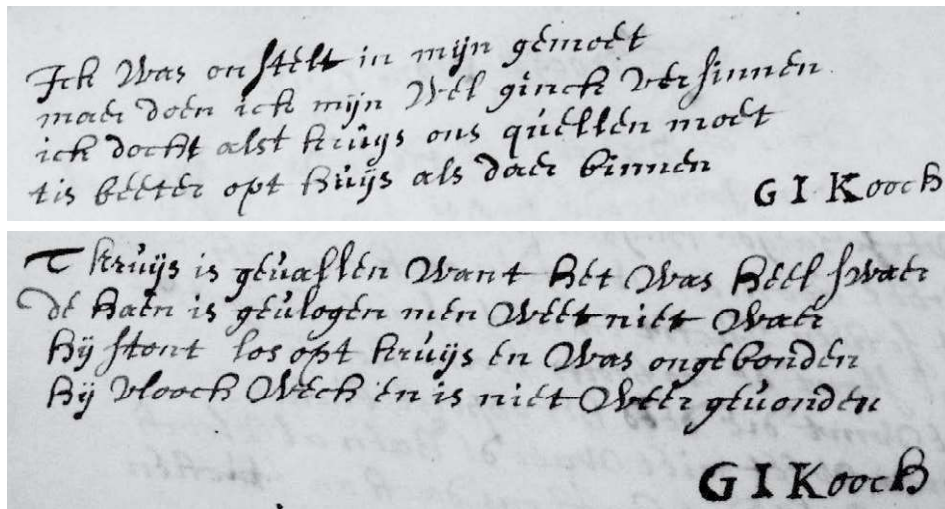 Ick was onstelt in mijn gemoet
maer doen ick mijn wel ginck versinnen
ick docht alst kruijs ons quellen moet
tis beeter opt huijs als daer binnen
G I Kooch
T kruijs is gevallen want het was heel swaer
de haen is gevlogen men weet niet waer
hij stont los opt kruijs en was ongebonden
hij vlooch wech en is niet weer gevonden
G I Kooch